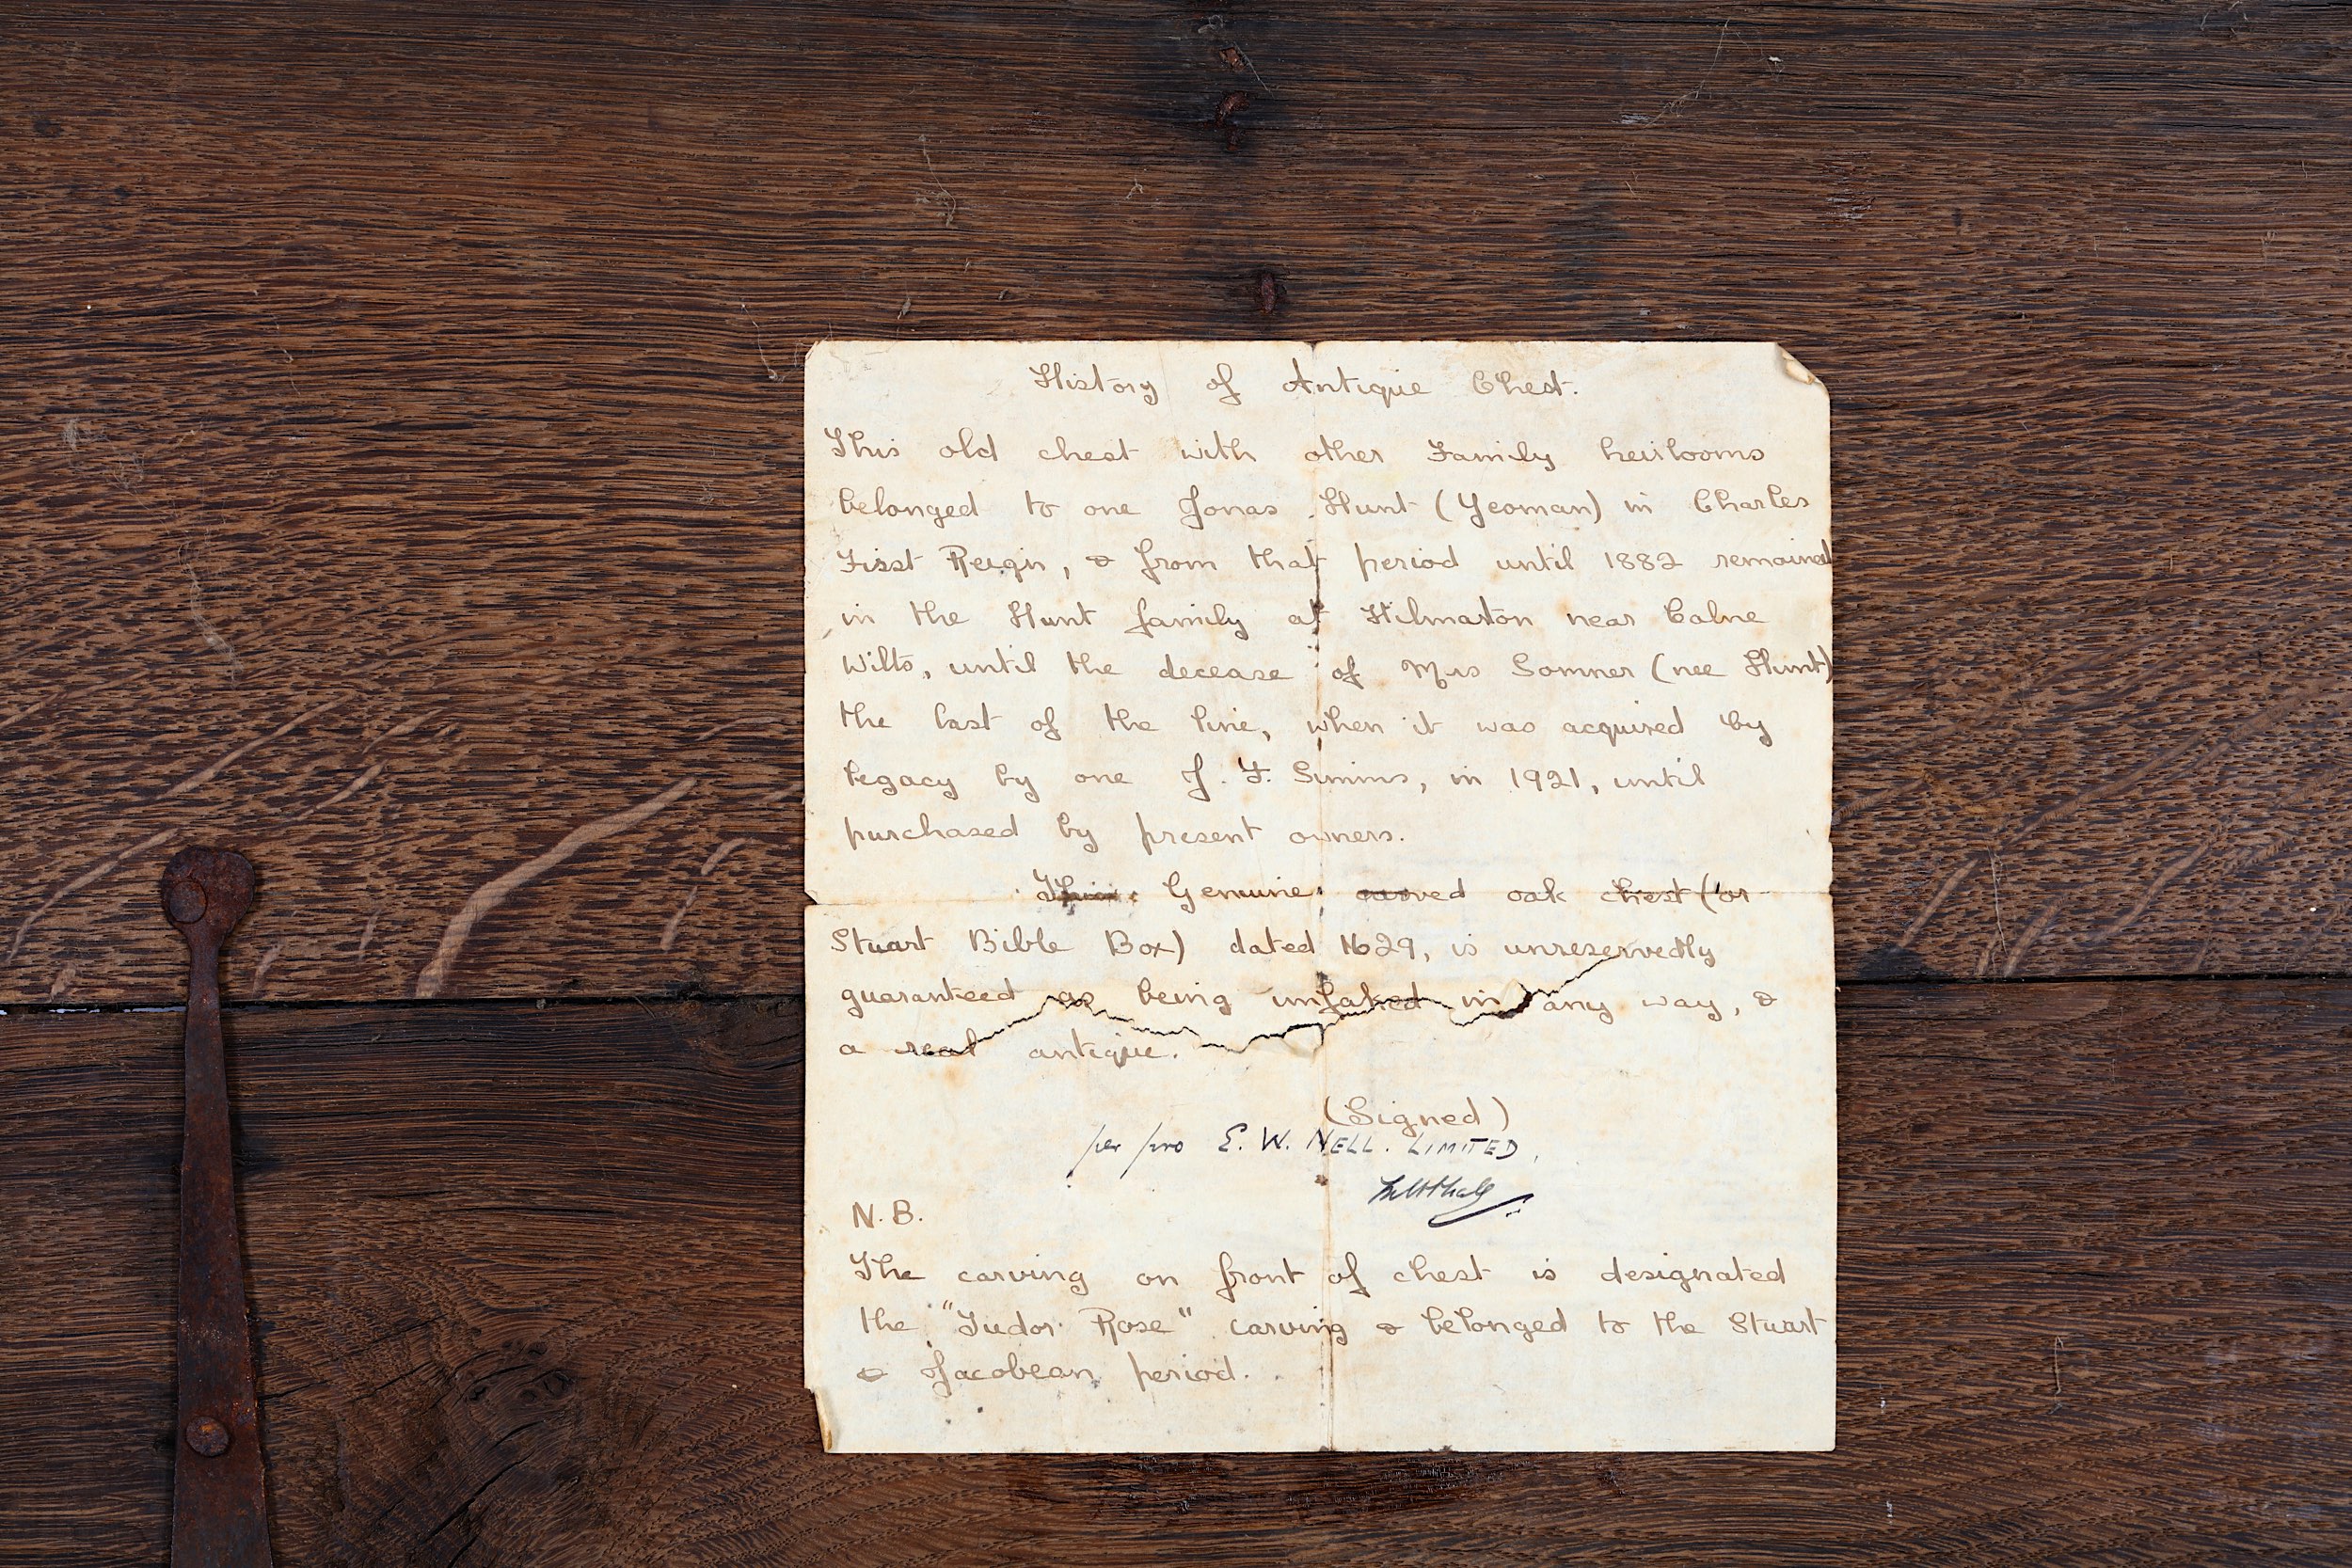 History of Antique Chest.
This old chest with other Family heirlooms
belonged to one Jonas Hunt (Yeoman) in Charles
First Reign, & from that period until 1882 remained
in the Hunt family at Hilmarton near Calne
Wilts, until the decease of Mrs Somner (nee Hunt)
the last of the line, when it was acquired by
legacy by one J. F. Simms, in 1921, until
purchased by present owners.
This Genuine carved oak chest (or
Stuart Bible Box) dated 1629, is unreservedly
guaranteed as being unfaked in any way, &
a real antique.
(Signed)
per pro E. W. NELL. LIMITED,
N.B.
The carving on front of chest is designated
the "Tudor Rose" carving & belonged to the Stuart
& Jacobean period.